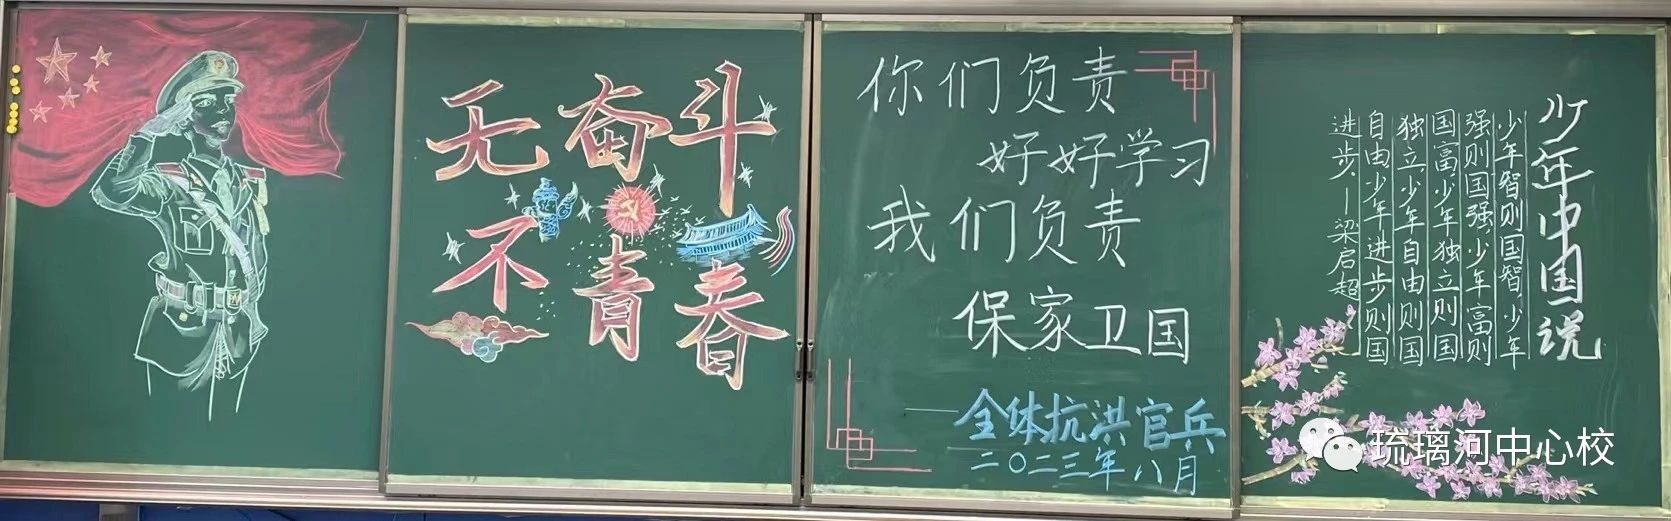 无奋斗
不青春
你们负责
好好学习
我们负责
保家卫国
一全体抗洪官兵
二〇二三年八月
少年中国说
少年智则国智,少年
强则国强,少年富则
国富,少年独立则国
独立,少年自由则国
自由,少年进步则国
进步。—梁启超
琉璃河中心校